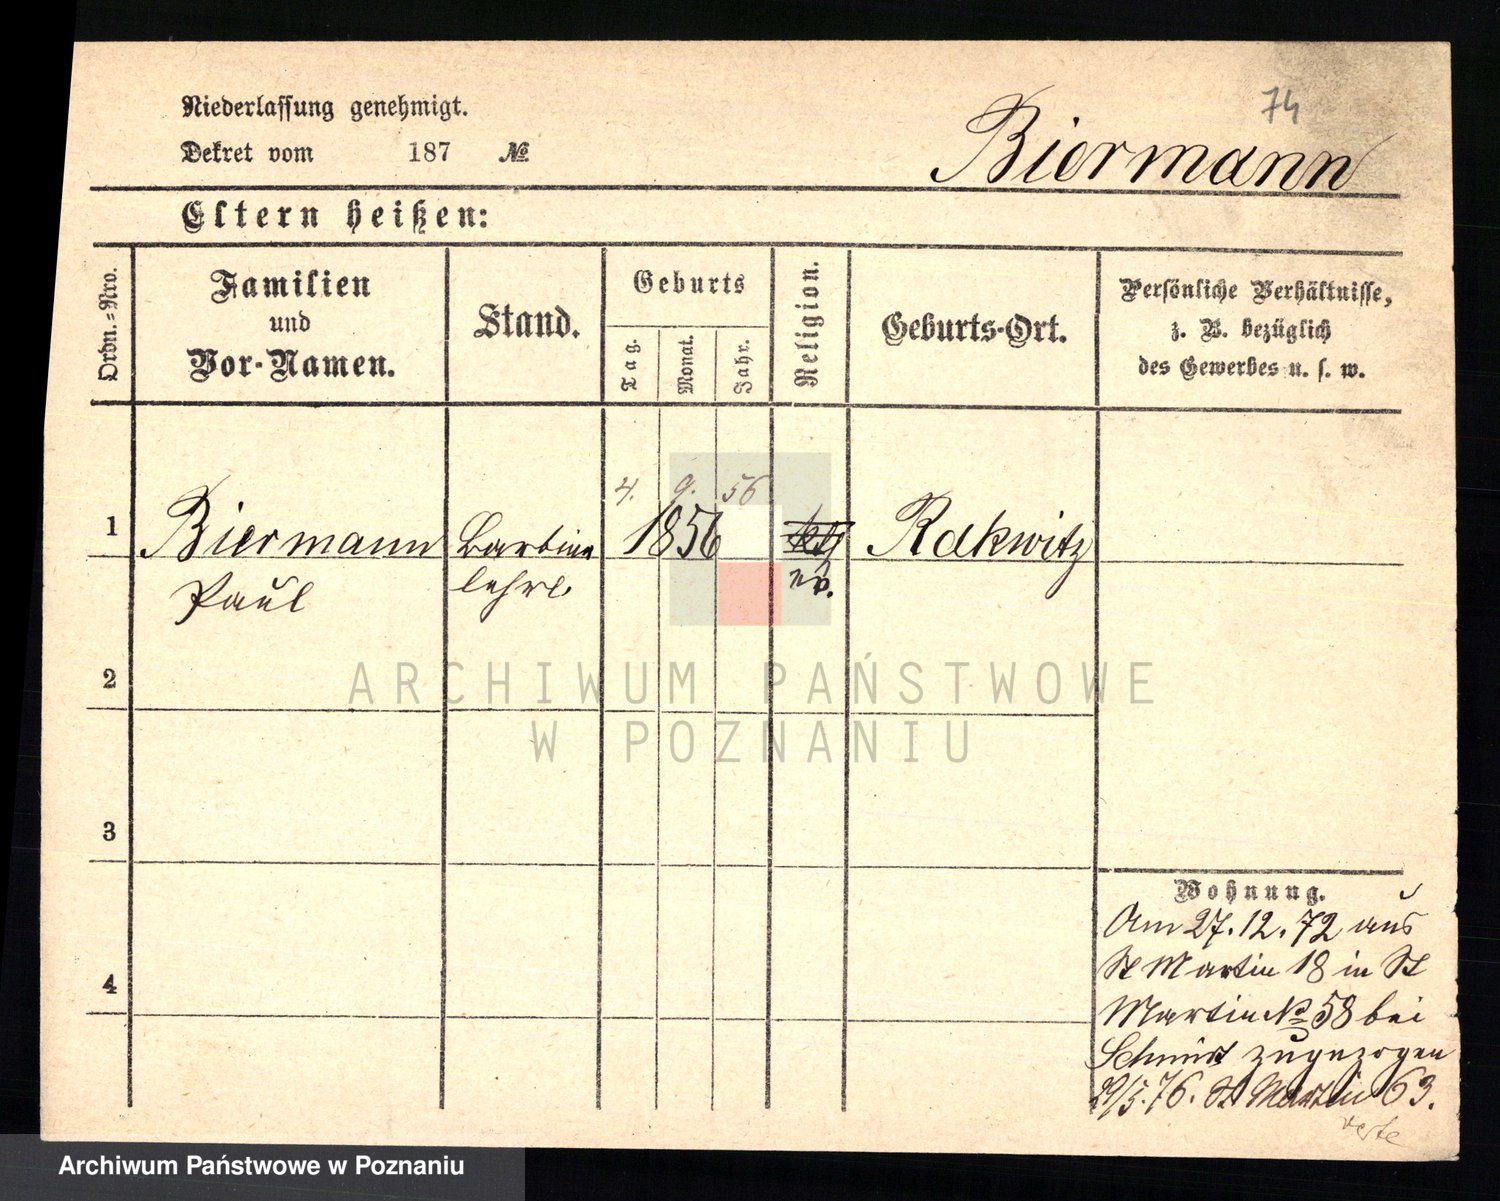 74
Niederlassung genehmigt.
Dekret vom 187 №
Biermann
Eltern heißen:
Ordn.-Nro.
Familien
und
Vor-Namen.
Stand.
Geburts
Tag.
Monat.
Jahr.
Religion.
Geburts-Ort.
Persönliche Verhältnisse,
z. B. bezüglich
des Gewerbes u. s. w.
4. 9. 56
1 Biermann 1856 Rakwitz
Paul lehrl. ev.
2
3
4
Wohnung.
Am 27. 12. 72 aus
St Martin 18 in St
Martin № 58 bei
zugezogen
29/5. 76. St Martin 63.
ARCHIWUM PAŃSTWOWE
W POZNANIU
Archiwum Państwowe w Poznaniu